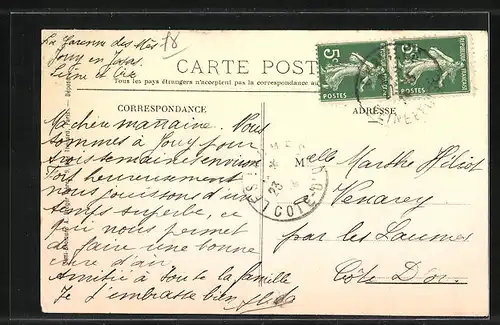 La Garenne des Mès
Jouy en Josas
Seine et Oise
CARTE POSTALE
Tous les pays étrangers n'acceptent pas la correspondance au
5c
POSTES
5c
POSTES
CORRESPONDANCE
ADRESSE
Ma chère marraine. Nous
sommes à Jouy pour
trois semaines environ
Fort heureusement
nous jouissons d'un
temps superbe, ce
qui nous permet
de faire une bonne
cure d'air.
Amitié à toute la famille
Je t'embrasse bien
23
Melle Marthe Héliot
Venarey
par les Laumes
Côte D'or.